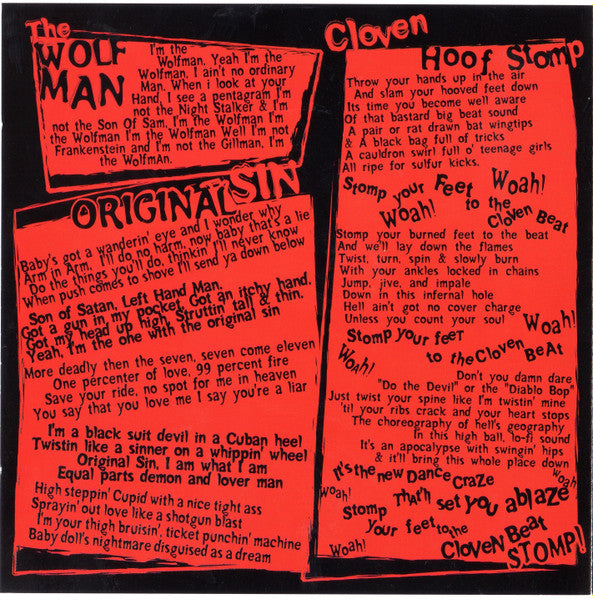 The
WOLF
MAN
I'm the
Wolfman. Yeah I'm the
Wolfman, I ain't no ordinary
Man. When i look at your
Hand, I see a pentagram I'm
not the Night Stalker & I'm
not the Son Of Sam. I'm the Wolfman I'm
the Wolfman I'm the Wolfman Well I'm not
Frankenstein and I'm not the Gillman, I'm
the WolfmAn.
ORIGINAL SIN
Baby's got a wanderin' eye and I wonder why
Arm in Arm, I'll do no harm, now baby that's a lie
Do the things you'll do, thinkin' I'll never know
When push comes to shove I'll send ya down below
Son of Satan, Left Hand Man.
Got a gun in my pocket, Got an itchy hand.
Got my head up high, Struttin' tall & thin.
Yeah, I'm the one with the original sin
More deadly then the seven, seven come eleven
One percenter of love, 99 percent fire
Save your ride, no spot for me in heaven
You say that you love me I say you're a liar
I'm a black suit devil in a Cuban heel
Twistin like a sinner on a whippin' wheel
Original Sin, I am what I am
Equal parts demon and lover man
High steppin' Cupid with a nice tight ass
Sprayin' out love like a shotgun blast
I'm your thigh bruisin', ticket punchin' machine
Baby doll's nightmare disguised as a dream
Cloven
Hoof Stomp
Throw your hands up in the air
And slam your hooved feet down
Its time you become well aware
Of that bastard big beat sound
A pair or rat drawn bat wingtips
& A black bag full of tricks
A cauldron swirl full o' teenage girls
All ripe for sulfur kicks.
Stomp your Feet Woah!
Woah! to the
Cloven Beat
Stomp your burned feet to the beat
And we'll lay down the flames
Twist, turn, spin & slowly burn
With your ankles locked in chains
Jump, jive, and impale
Down in this infernal hole
Hell ain't got no cover charge
Unless you count your soul
Woah!
Stomp your feet
Woah! to the Cloven BeAt
Don't you damn dare
"Do the Devil" or the "Diablo Bop"
Just twist your spine like I'm twistin' mine
'til your ribs crack and your heart stops
The choreography of hell's geography
In this high ball, lo-fi sound
It's an apocalypse with swingin' hips
& it'll bring this whole place down
It's the new DAnce CrAze
Woah!
Woah! ThAt'll set yOu ablaze
Stomp
your Feet to the
Woah! CloveN BeAt
STOMP!